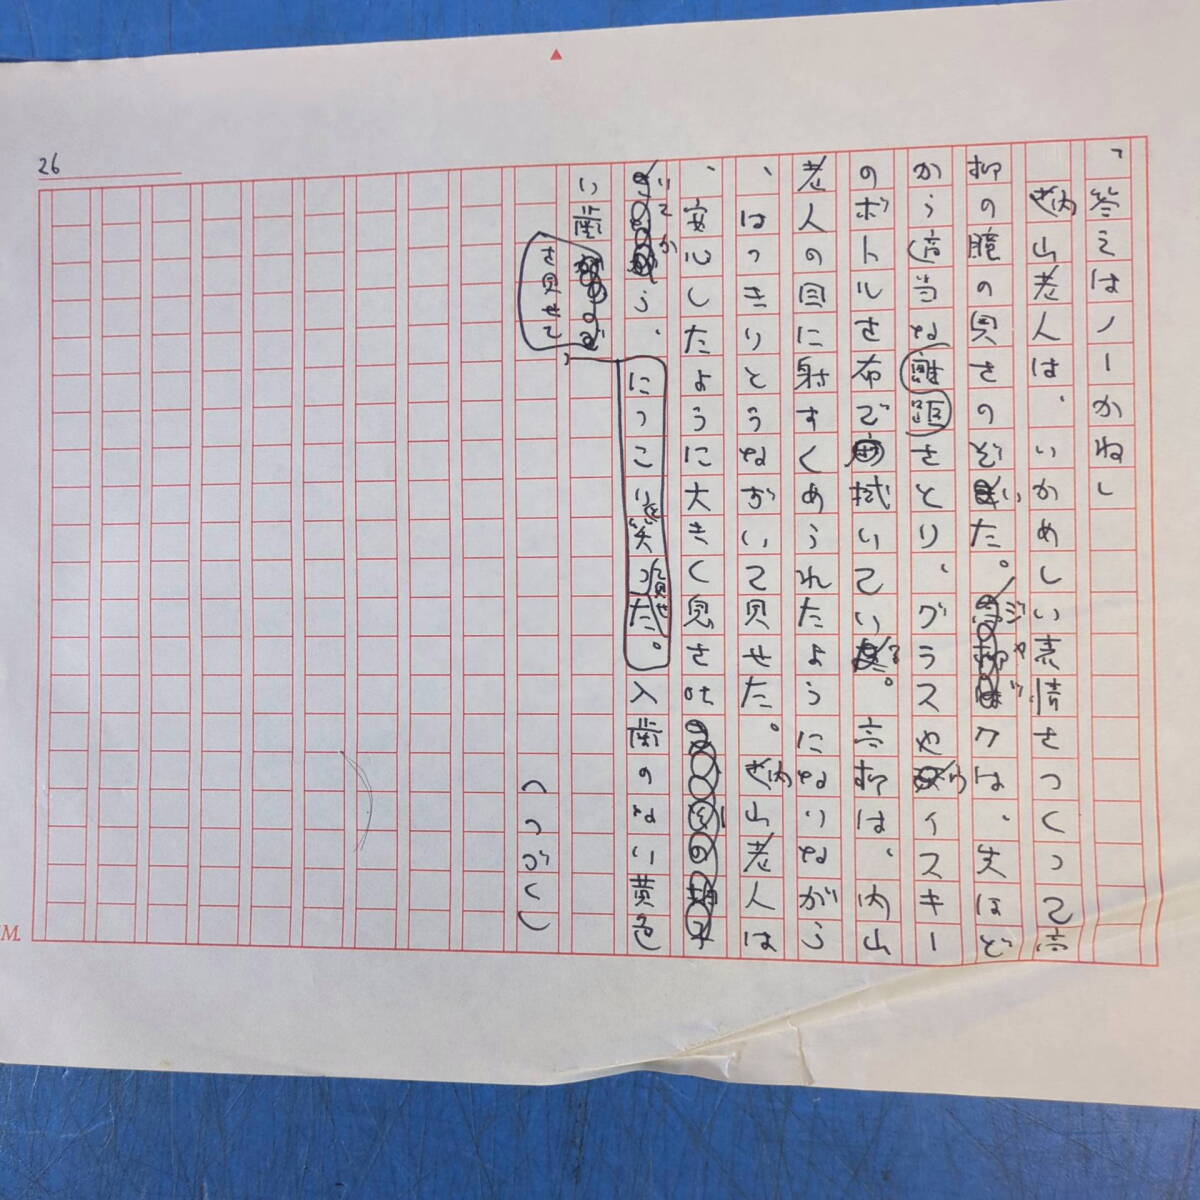 26
「答えはノーかね」
内山老人は、いかめしい表情をつくって高
柳の瞳の奥をのぞいた。ジャックは、先ほど
から適当な離距をとり、グラスやウイスキー
のボトルを布で拭いている。高柳は、内山
老人の目に射すくめられたようになりながら
、はっきりとうなずいて見せた。内山老人は
、安心したように大きく息を吐
いてから、にっこり笑った。入歯のない黄色
い歯
を見せて
（つづく）